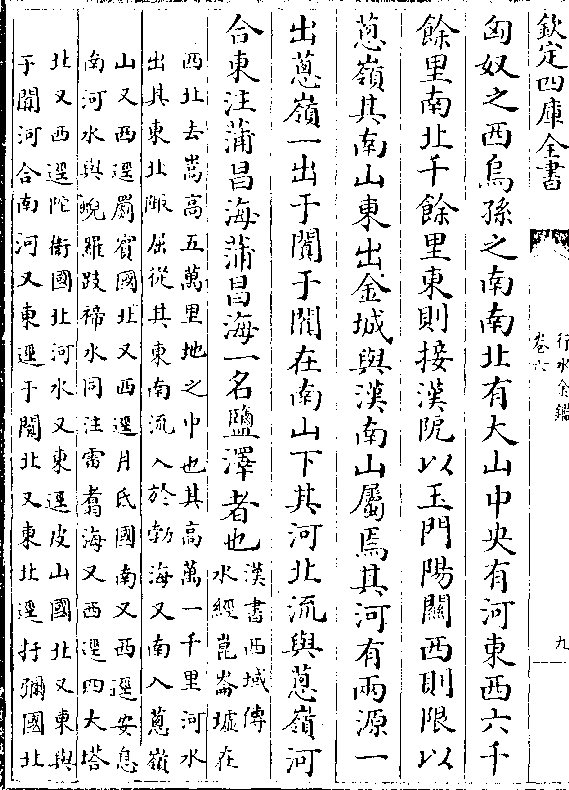 欽定四庫全書
行水金鑑
卷六
九
匈奴之西烏孫之南南北有大山中央有河東西六千
餘里南北千餘里東則接漢阸以玉門陽關西則限以
蔥嶺其南山東出金城與漢南山屬焉其河有兩源一
出蔥嶺一出于闐于闐在南山下其河北流與蔥嶺河
合東注蒲昌海蒲昌海一名鹽澤者也
漢書西域傳
水經崑崙墟在
西北去嵩高五萬里地之中也其高萬一千里河水
出其東北陬屈從其東南流入於勃海又南入蔥嶺
山又西逕罽賓國北又西逕月氏國南又西逕安息
南河水與蜺羅跂禘水同注雷翥海又西逕四大塔
北又西逕陀衛國北河水又東逕皮山國北又東與
于闐河合南河又東逕于闐北又東北逕扜彌國北